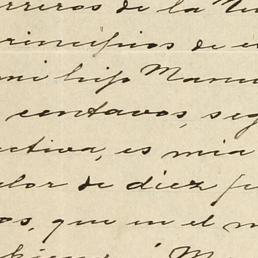 rreros de la
principios de
mi hijo Manu
centavos, seg
ectiva, es mia
alor de diez
os, que en el m